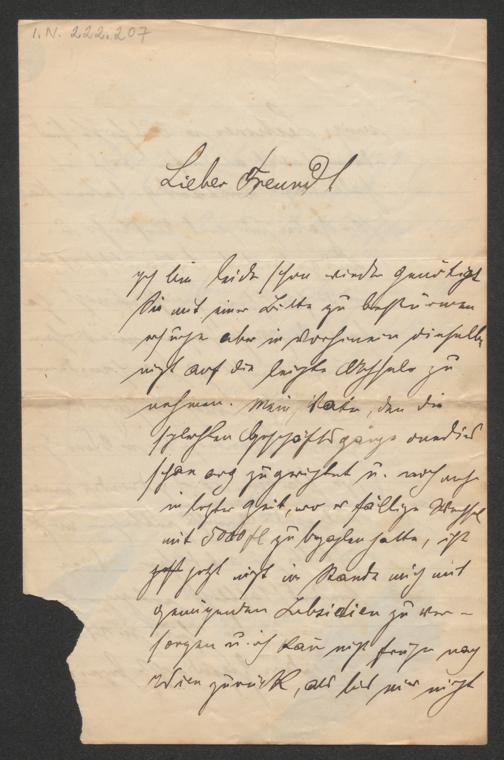 I.N. 222.207
Lieber Freund!
ich bin leider schon wieder genötigt
Sie mit einer Bitte zu bestürmen
ersuche aber im Vorhinein dieselbe
nicht auf die leichte Achsel zu
nehmen. Mein Vater, den die
schlechten Geschäftsgänge ohnedies
schon arg zugerichtet u. noch mehr
in letzter Zeit, wo er fällige Wechsel
mit 5000 fl zu bezahlen hatte, ist
jetzt nicht im Stande mich mit
genügenden Subsidien zu ver-
sorgen u. ich kann nicht früher nach
Wien zurück, als bis mir nicht